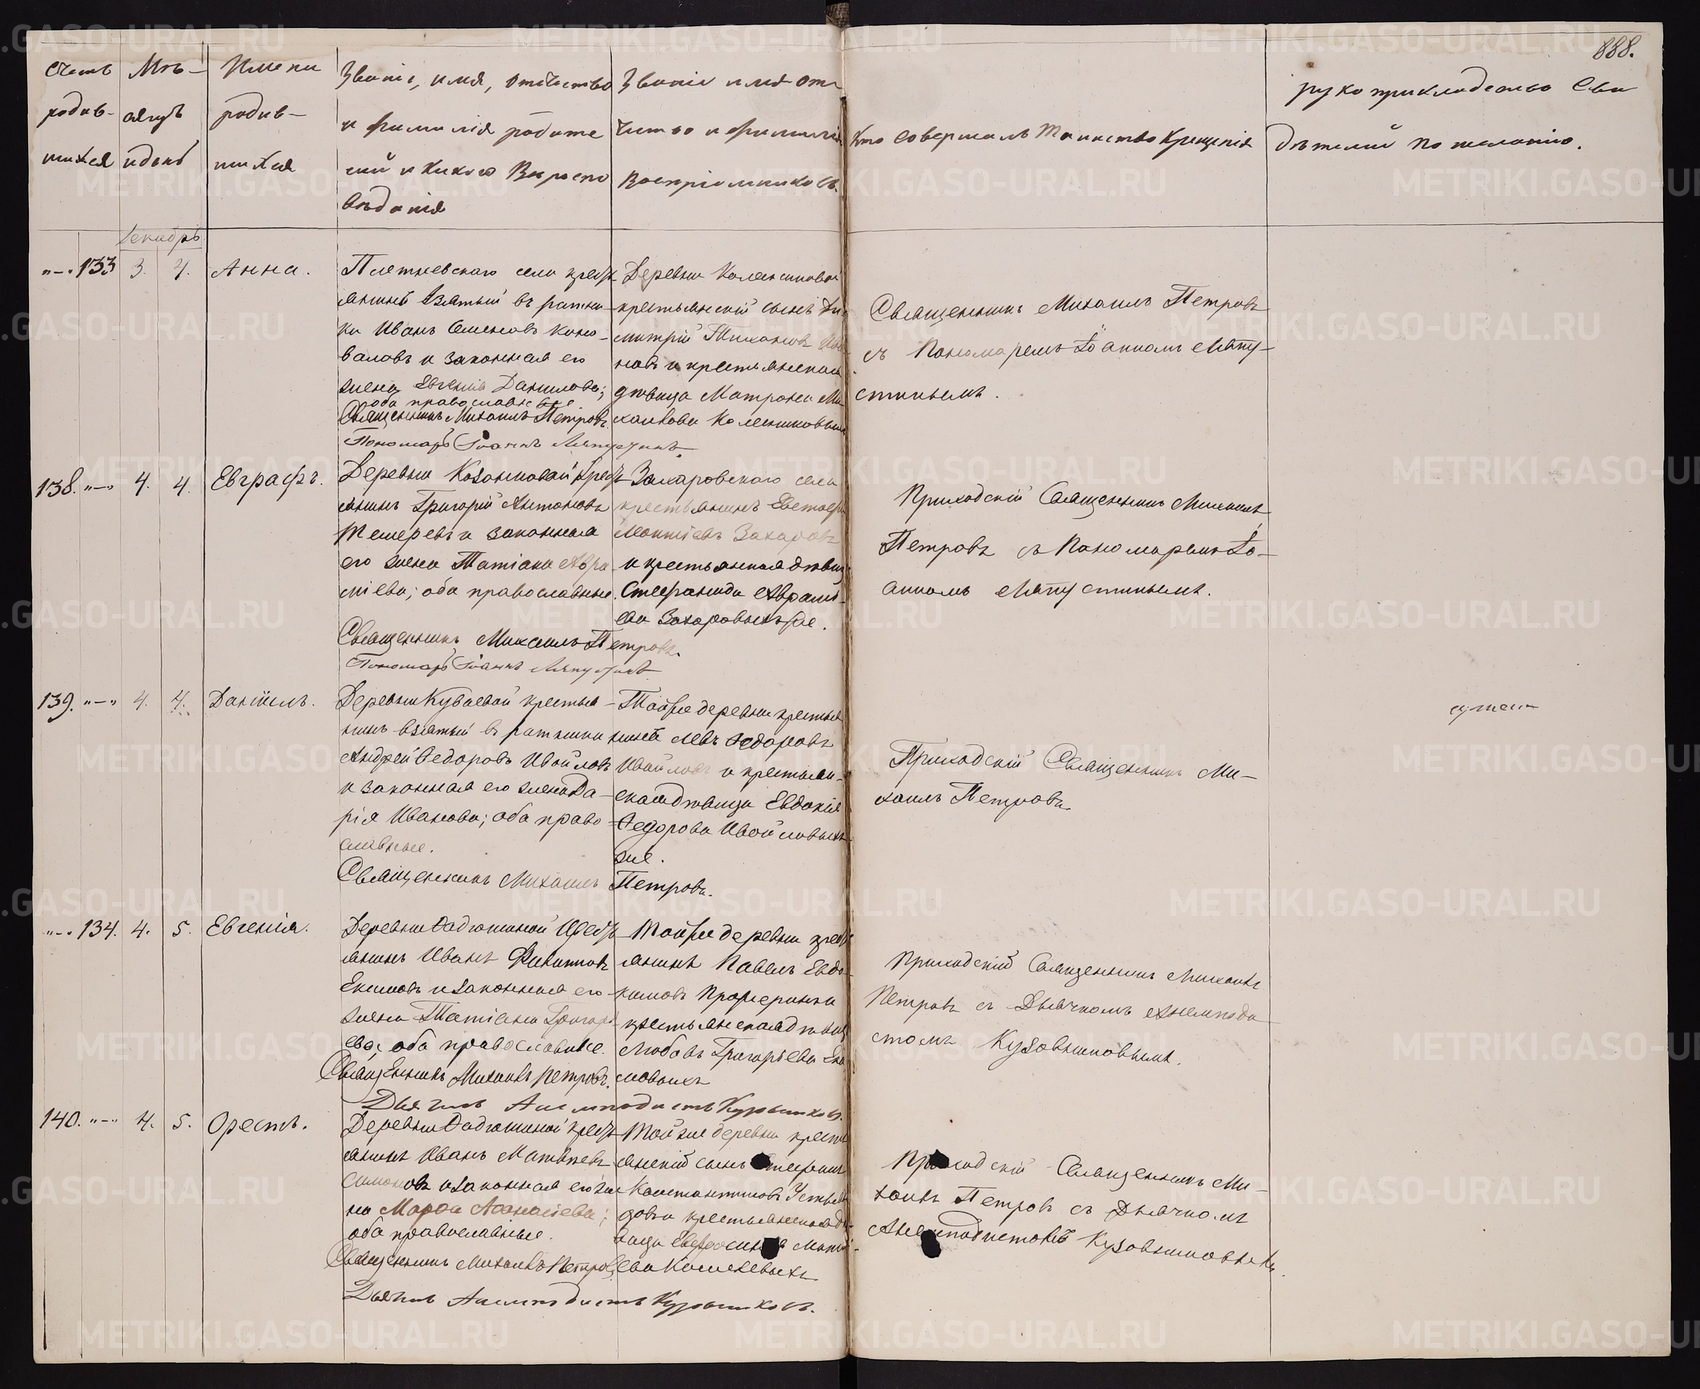 888.
Счетъ родив- шихся
Мѣ- сяцъ и день
Имена родив- шихся
Званіе, имя, отчество
и фамилія родите
лей и какого Вѣроспо
вѣданія
Званіе имя отче
чество и фамилія
Воспріемниковъ.
Кто совершалъ Таинство Крещенія
рукоприкладство Сви
дѣтелей по желанію.
Декабрь
133 3. 4. Анна.
Плетневскаго села крест
янинъ взятый въ ратни
ки Иванъ Семеновъ Коно-
валовъ и законная его
жена Евгенія Данилова;
оба православные
Священникъ Михаилъ Петровъ
Пономарь Іоаннъ Ляпустинъ
Деревни
крестьянскій сынъ Ди
митрій Тихановъ
новъ и крестьянская
дѣвица Матрона Ми
хайлова
Священникъ Михаилъ Петровъ
съ Пономаремъ Іоанномъ Ляпу-
стинымъ.
138. 4. 4. Евграфъ.
Деревни Казанковой Крест
янинъ Григорій Антоновъ
и законная
его жена Татіана Авра
міева; оба православные.
Священникъ Михаилъ Петровъ.
Пономарь Іоаннъ Ляпустинъ
Захаровского села
крестьянинъ
Захаровъ
и крестьянская дѣвица
Стефанида Аврамі-
ева Захаровыхъ же.
Приходскій Священникъ Михаилъ
Петровъ съ Пономаремъ Іо-
анномъ Ляпустинымъ.
139. 4. 4. Даніилъ.
Деревни Куваевой крестья
нинъ взятый въ ратники
Андрей Ѳедоровъ Ивойловъ
и законная его жена Да-
рія Иванова; оба право-
славные.
Священникъ Михаилъ Петровъ.
Той же деревни крестья
нинъ Левъ Ѳедоровъ
Ивойловъ и крестьян-
ская дѣвица Евдокія
Ѳедорова Ивойловыхъ
же.
Приходскій Священникъ Ми-
хаилъ Петровъ.
134. 4. 5. Евгенія.
Деревни Фадюшиной Крест
янинъ Иванъ Филипповъ
Екимовъ и законная его
жена Татіана Григорь
ева; оба православные.
Священникъ Михаилъ Петровъ.
Дьячекъ Анемподистъ Кузовниковъ.
Той же деревни крест
янинъ Павелъ Евдо
кимовъ
крестьянская дѣвица
Любовь Григорьева Еки
мовыхъ
Приходскій Священникъ Михаилъ
Петровъ съ Дьячкомъ Анемподи
стомъ Кузовниковымъ.
140. 4. 5. Орестъ.
Деревни Фадюшиной крест
янинъ Иванъ Матвѣевъ
Симоновъ и законная его же
на Марѳа Аѳанасіева;
оба православные.
Священникъ Михаилъ Петровъ
Дьячекъ Анемподистъ Кузовниковъ.
Той же деревни кресть
янскій сынъ Стефанъ
Константиновъ
и крестьянская дѣ
вица
Приходскій Священникъ Ми-
хаилъ Петровъ съ Дьячкомъ
Анемподистомъ Кузовниковымъ.
METRIKI.GASO-URAL.RU